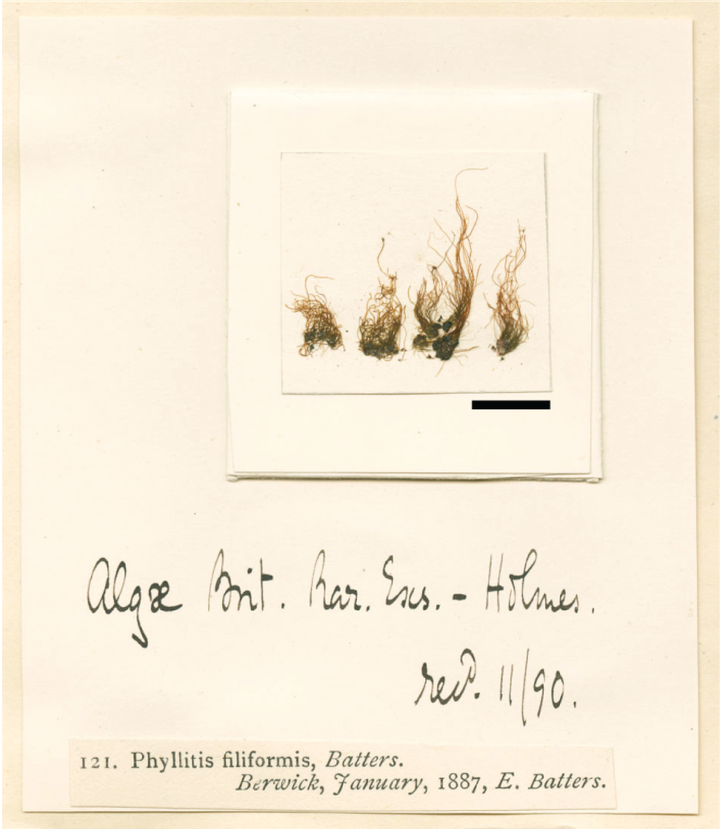 Algæ Brit. Rar. Exs. - Holmes.
recd. 11/90.
121. Phyllitis filiformis, Batters.
Berwick, January, 1887, E. Batters.